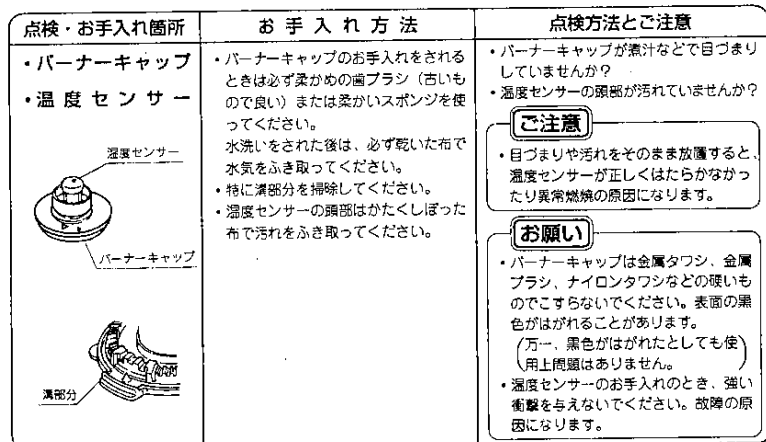 点検・お手入れ箇所
お手入れ方法
点検方法とご注意
・バーナーキャップ
・温度センサー
温度センサー
バーナーキャップ
溝部分
・バーナーキャップのお手入れをされる
ときは必ず柔かめの歯ブラシ（古いも
ので良い）または柔かいスポンジを使
ってください。
水洗いをされた後は、必ず乾いた布で
水気をふき取ってください。
・特に溝部分を掃除してください。
・温度センサーの頭部はかたくしぼった
布で汚れをふき取ってください。
・バーナーキャップが煮汁などで目づまり
していませんか？
・温度センサーの頭部が汚れていませんか？
ご注意
・目づまりや汚れをそのまま放置すると、
温度センサーが正しくはたらかなかっ
たり異常燃焼の原因になります。
お願い
・バーナーキャップは金属タワシ、金属
ブラシ、ナイロンタワシなどの硬いも
のでこすらないでください。表面の黒
色がはがれることがあります。
（万一、黒色がはがれたとしても使
用上問題はありません。）
・温度センサーのお手入れのとき、強い
衝撃を与えないでください。故障の原
因になります。